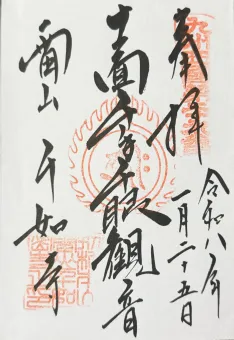 奉拝
令和八年
一月二十五日
十一面千手千眼観音
雷山
千如寺